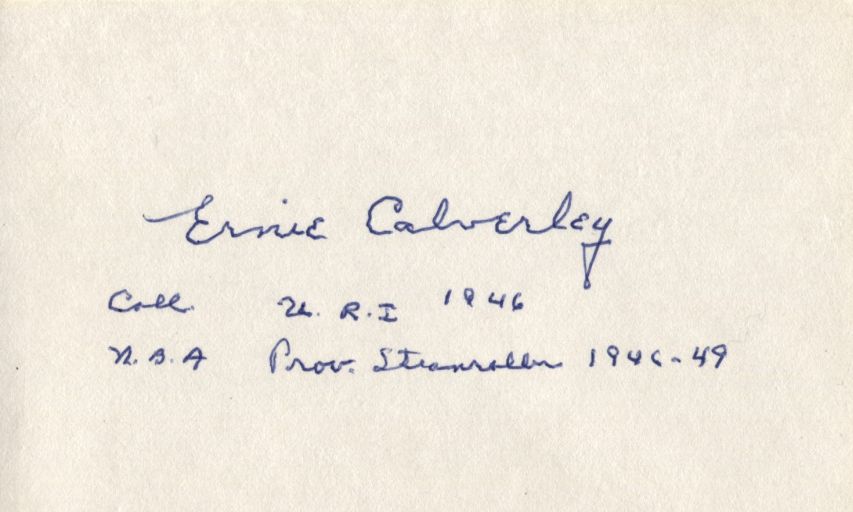 Ernie Calverley
Coll. U. R. I 1946
N. B. A Prov. Steamroller 1946-49